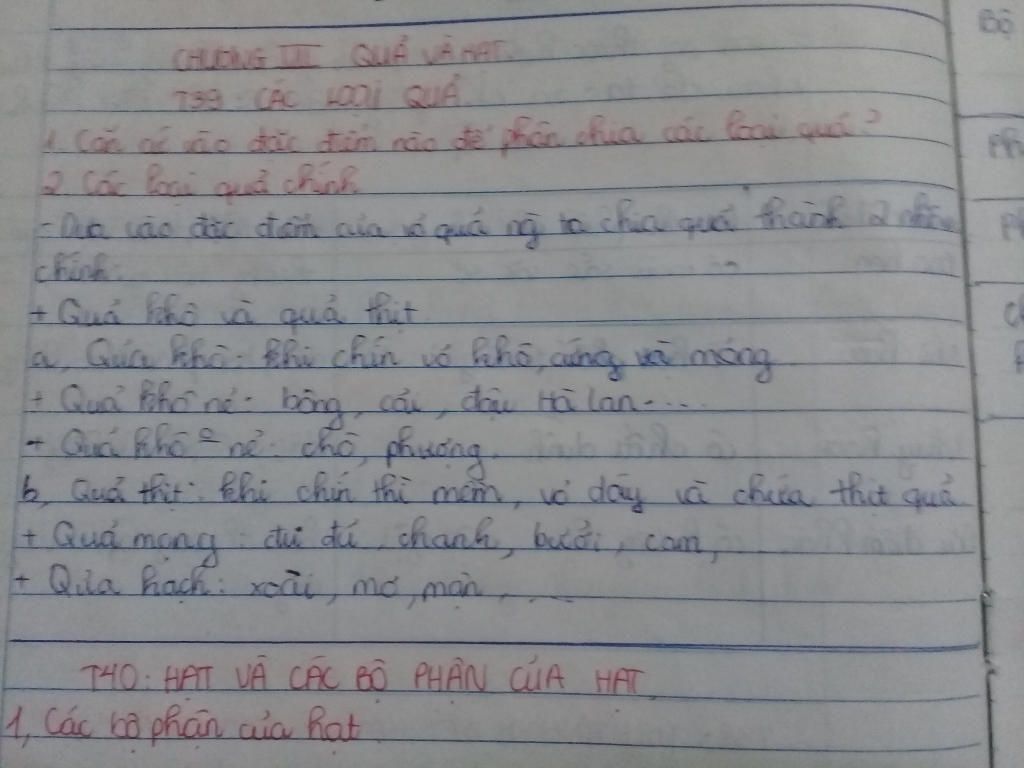 CHƯƠNG III QUẢ VÀ HẠT.
T39: CÁC LOẠI QUẢ
1. Căn cứ vào đặc điểm nào để phân chia các loại quả?
2 Các loại quả chính
- Dựa vào đặc điểm của vỏ quả ng ta chia quả thành 2 nhóm
chính:
+ Quả khô và quả thịt
a, Quả khô: khi chín vỏ khô, cứng và mỏng
+ Quả khô nẻ: bông, cải, đậu Hà lan....
+ Quả khô nẻ: chò, phượng.
b, Quả thịt: khi chín thì mềm, vỏ dày và chứa thịt quả
+ Quả mọng: đu đủ, chanh, bưởi, cam,
+ Qủa hạch: xoài, mơ, mận, ....
T40: HẠT VÀ CÁC BỘ PHẬN CỦA HẠT
1, Các bộ phận của hạt
Bộ
Ph